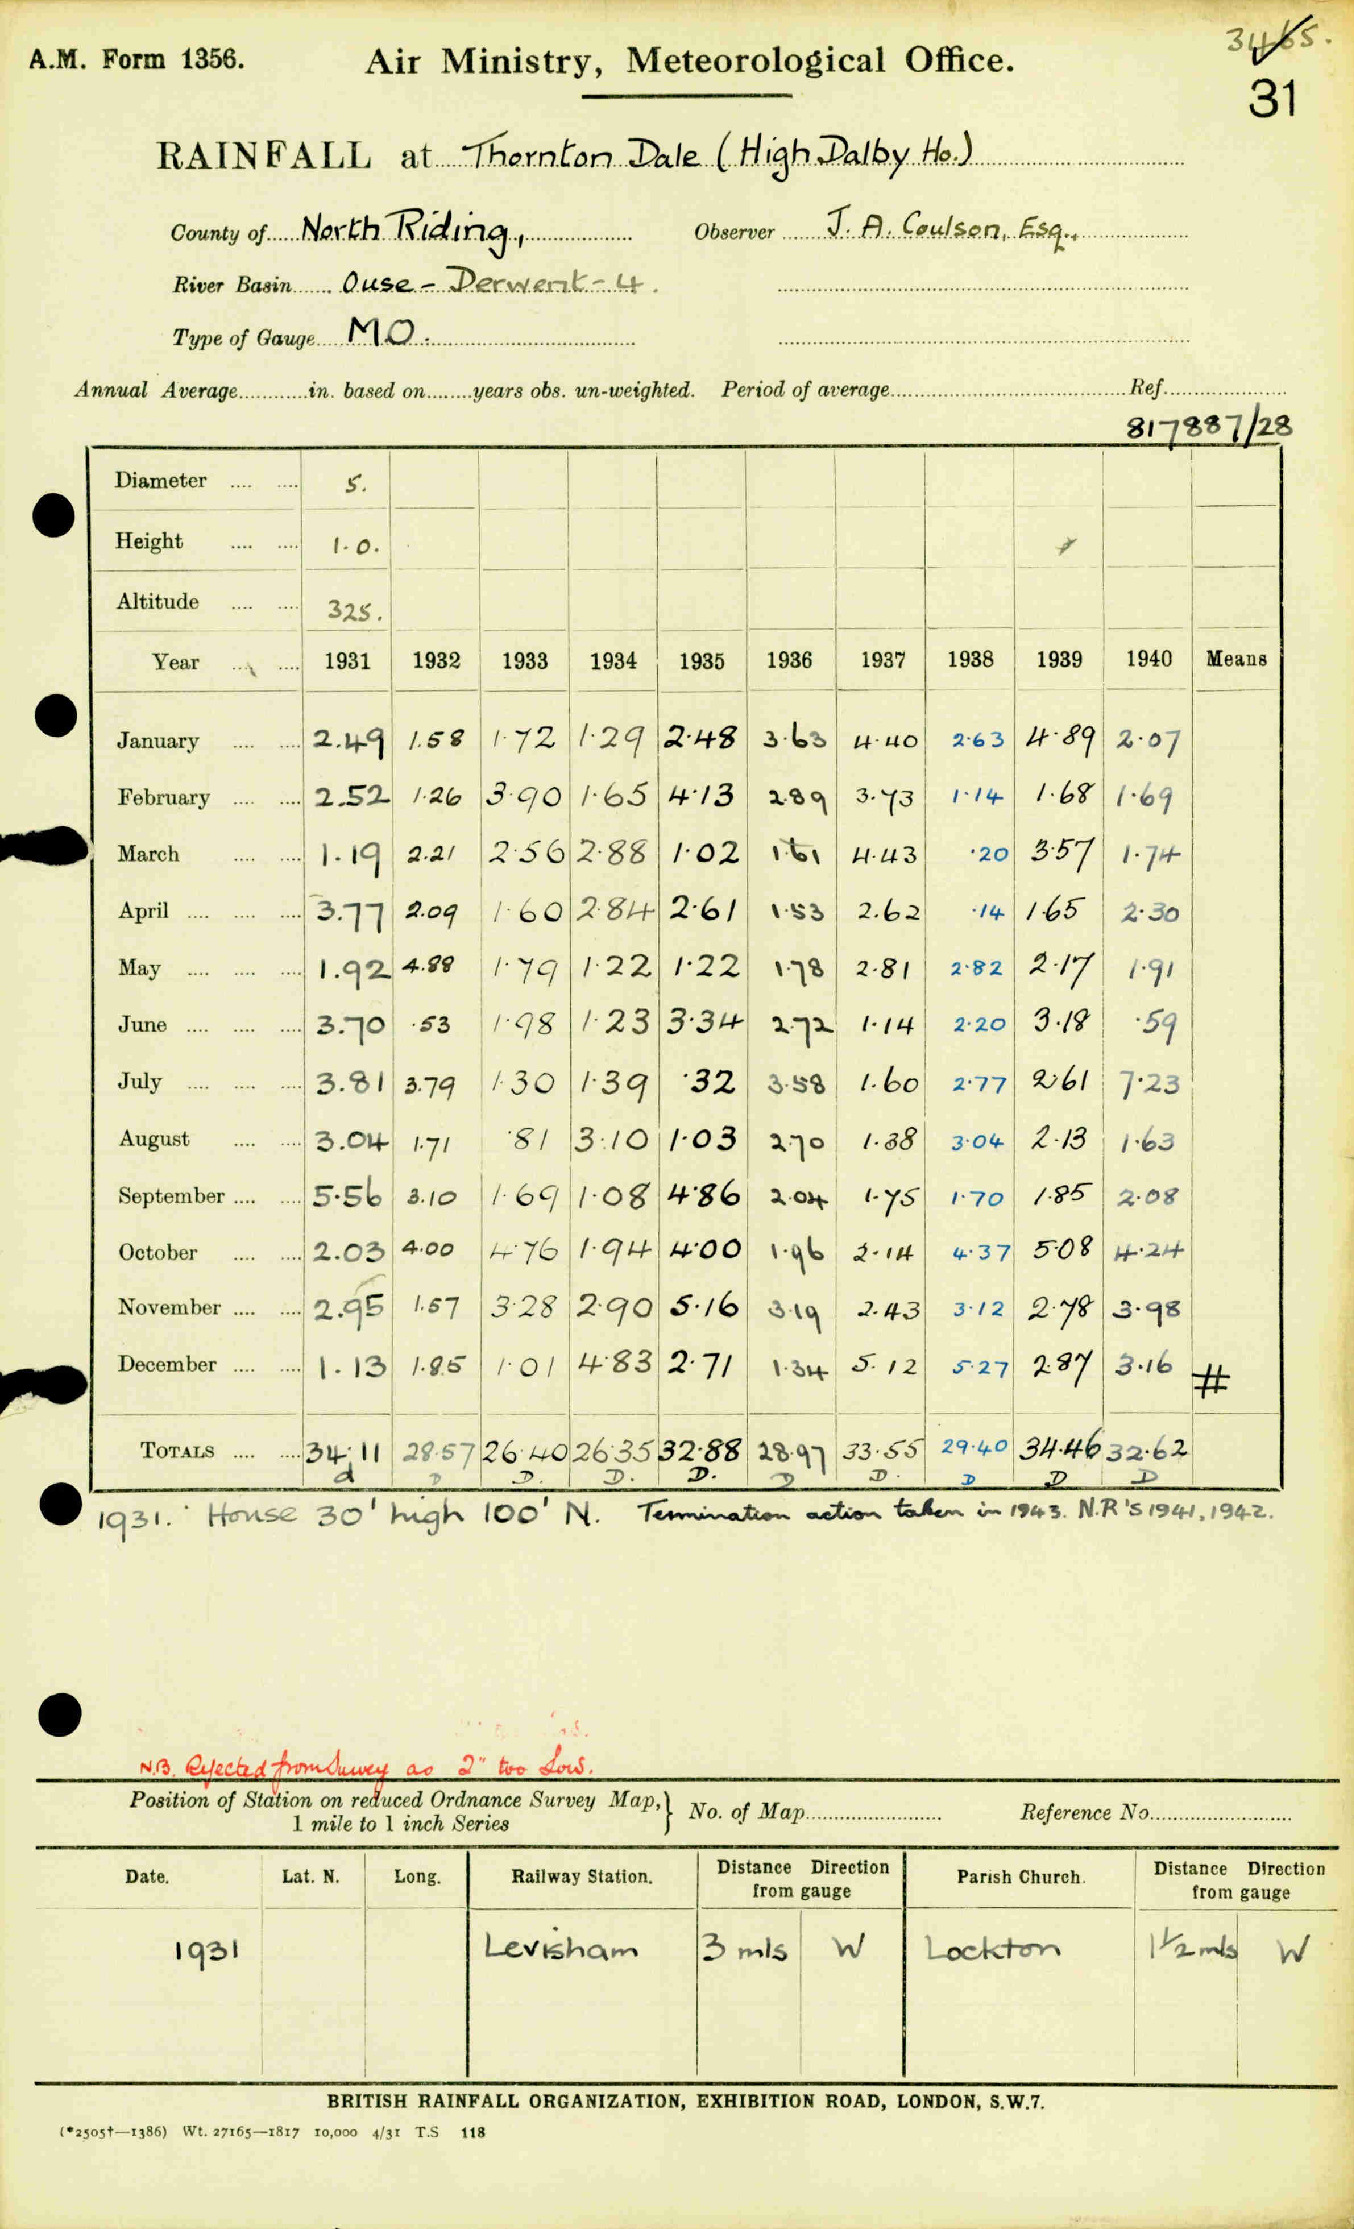 3465.
A.M. Form 1356.
Air Ministry, Meteorological Office.
31
RAINFALL at Thornton Dale (High Dalby Ho.)
County of North Riding, Observer J. A. Coulson, Esq.,
River Basin Ouse - Derwent - 4.
Type of Gauge MO.
Annual Average in. based on years obs. un-weighted. Period of average Ref.
817887/28
Diameter 5.
Height 1.0.
Altitude 325.
Year 1931 1932 1933 1934 1935 1936 1937 1938 1939 1940 Means
January 2.49 1.58 1.72 1.29 2.48 3.63 4.40 2.63 4.89 2.07
February 2.52 1.26 3.90 1.65 4.13 2.89 3.73 1.14 1.68 1.69
March 1.19 2.21 2.56 2.88 1.02 1.61 4.43 .20 3.57 1.74
April 3.77 2.09 1.60 2.84 2.61 1.53 2.62 .14 1.65 2.30
May 1.92 4.88 1.79 1.22 1.22 1.78 2.81 2.82 2.17 1.91
June 3.70 .53 1.98 1.23 3.34 2.72 1.14 2.20 3.18 .59
July 3.81 3.79 1.30 1.39 .32 3.58 1.60 2.77 2.61 7.23
August 3.04 1.71 .81 3.10 1.03 2.70 1.38 3.04 2.13 1.63
September 5.56 3.10 1.69 1.08 4.86 2.04 1.75 1.70 1.85 2.08
October 2.03 4.00 4.76 1.94 4.00 1.96 2.14 4.37 5.08 4.24
November 2.95 1.57 3.28 2.90 5.16 3.19 2.43 3.12 2.78 3.98
December 1.13 1.85 1.01 4.83 2.71 1.34 5.12 5.27 2.87 3.16 #
TOTALS 34.11 28.57 26.40 26.35 32.88 28.97 33.55 29.40 34.46 32.62
d D D. D. D. D D. D D D
1931. House 30' high 100' N. Termination action taken in 1943. N.R's 1941, 1942.
N.B. Rejected from Survey as 2" too Low.
Position of Station on reduced Ordnance Survey Map, } No. of Map Reference No.
1 mile to 1 inch Series
Date. Lat. N. Long. Railway Station. Distance Direction from gauge Parish Church. Distance Direction from gauge
1931 Levisham 3 mls W Lockton 1 1/2 mls W
BRITISH RAINFALL ORGANIZATION, EXHIBITION ROAD, LONDON, S.W.7.
(*2505†—1386) Wt. 27165—1817 10,000 4/31 T.S 118